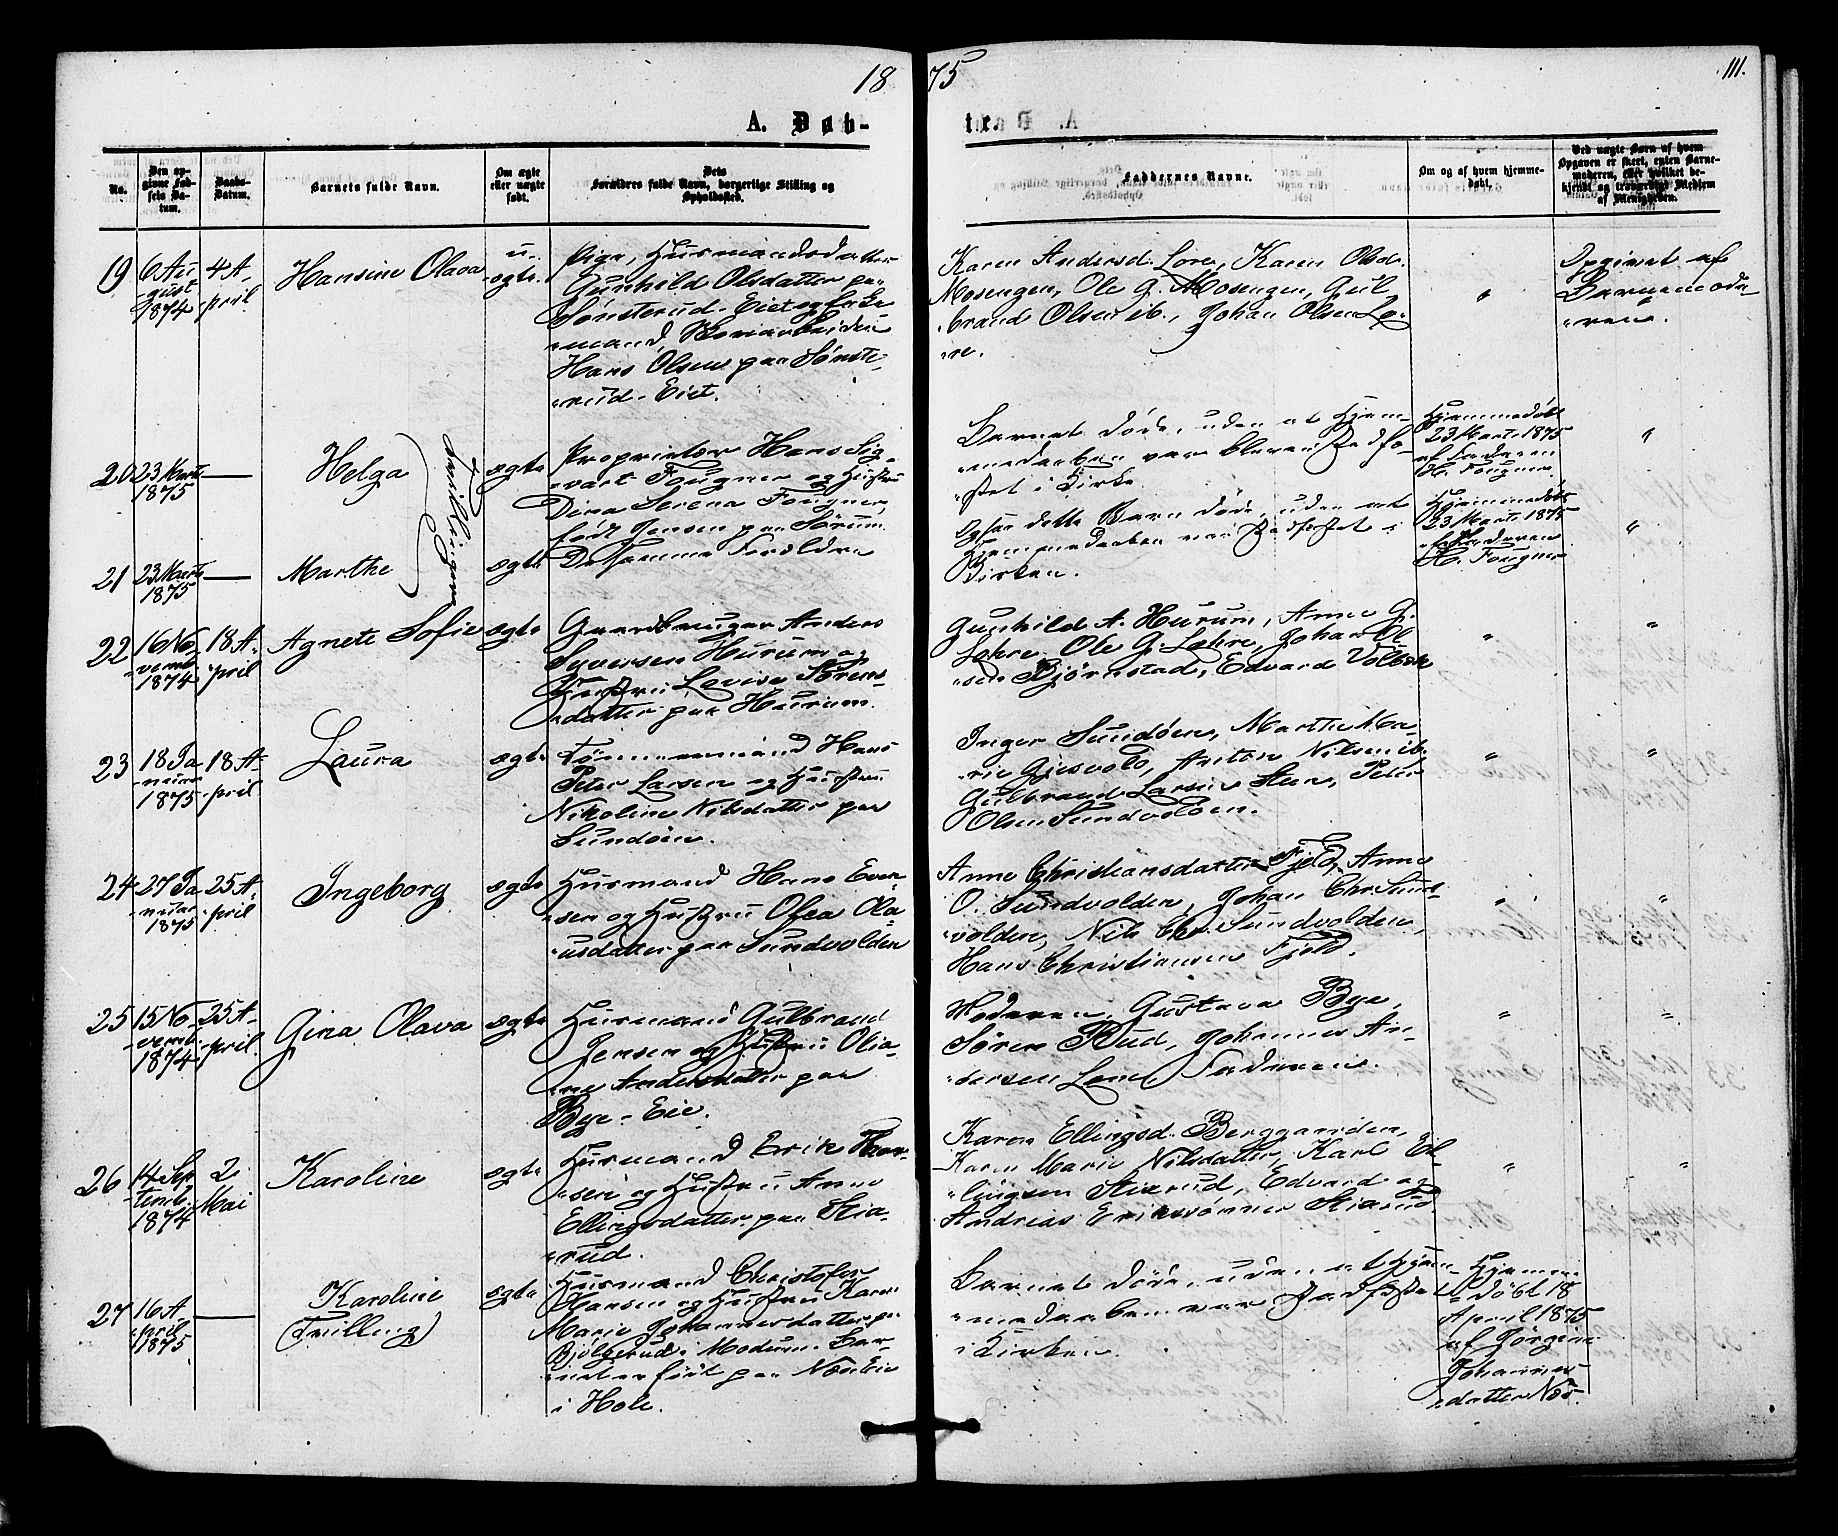 18
75
111.
A. Døb-
te.
No.
Den op-
givne Fød-
sels Da-
tum.
Daabs-
Datum.
Barnets fulde Navn.
Om ægte
eller uægte
født.
Dets
Forældres fulde Navn, borgerlige Stilling og
Opholdssted.
Faddernes Navne.
Om og af hvem hjemme-
døbt.
Ved uægte Børn af hvem
Opgaven er skeet, enten Barne-
moderen, eller hvilket be-
kjendt og troværdigt Medlem
af Menigheden.
19
6 Au
gust
1874
4 A-
pril
Hansine Olava
u-
ægte.
Pige, Husmandsdatter
Gunhild Olsdatter paa
Sønsterud-Eiet og
Hans Olsen paa Sønste-
rud-Eiet.
Karen Andersd. Lore, Karen Olsd.
Mosengen, Ole G. Mosengen, Gul
brand Olsen ib., Johan Olsen Lo-
re.
"
Opgivet af
Barnemode-
ren.
20
23 Marts
1875
—
Helga
Tvillinger
ægte
Proprietær Hans Sig-
vart Fougner og Hustru
Dina Serena Fougner,
født Jensen paa Sørum.
Barnet døde, uden at Hjem-
medaaben var bleven stadfæ-
stet i Kirke
Hjemmedøbt
23 Marts 1875
af Faderen
H. Fougner
"
21
23 Marts
1875
—
Marthe
ægte
De samme Forældre
Ogsaa dette Barn døde, uden at
Hjemmedaaben var stadfæstet i
Kirken.
Hjemmedøbt
23 Marts 1875
af Faderen
H. Fougner
"
22
16 No-
vemb.
1874
18 A-
pril
Agnete Sofie
ægte
Gaardbruger Anders
Syversen Hurum og
Hustru Lovise Sørens-
datter paa Hurum.
Gunhild A. Hurum, Anne G.
Lohre, Ole G. Lohre, Johan Ol
sen Bjørnstad, Edvard
"
"
23
18 Ja
nuar
1875
18 A-
pril
Laura
ægte
Tømmermand Hans
Peter Larsen og Hustru
Nikoline Nilsdatter paa
Sundøen.
Inger Sundøen, Marthe Ma-
rie Gjesvold, Anton Nilsen ib.
Gulbrand Larsen Steen, Peter
Olsen Sundvolden.
"
"
24
27 Ja
nuar
1875
25 A-
pril
Ingeborg
ægte
Husmand Hans Even
sen og Hustru Olea Ola
usdatter paa Sundvolden
Anne Christiansdatter Fjeld, Anne
O. Sundvolden, Johan Chr. Sund
volden, Nils Chr. Sundvolden,
Hans Christiansen Fjeld.
"
"
25
15 No-
vemb.
1874
25 A-
pril.
Gina Olava
ægte
Husmand Gulbrand
Jensen og Hustru Olia-
ne Andersdatter paa
Bye-Eie.
Moderen, Gustava Bye,
Søren Rud, Johannes An-
dersen Lore Faderen.
"
"
26
14 Sep
temb.
1874
2
Mai
Karoline
ægte
Husmand Erik Han-
sen og Hustru Anne
Ellingsdatter paa Stia-
rud.
Karen Ellingsd. Berggarden,
Karen Marie Nilsdatter, Karl El-
lingsen Stiarud, Edvard og
Andreas Erikssønner Stiarud.
"
"
27
16 A-
pril
1875
—
Karoline
(Trilling)
ægte
Husmand Christofer
Hansen og Hustru Karen
Marie Johannesdatter paa
Bjølgerud i Modum. Bar-
net er født paa Næs Eie
i Hole.
Barnet døde, uden at Hjem-
medaaben var stadfæstet
i Kirken.
Hjemme-
døbt 18
April 1875
af Jørgine
Johannes
datter Næs.